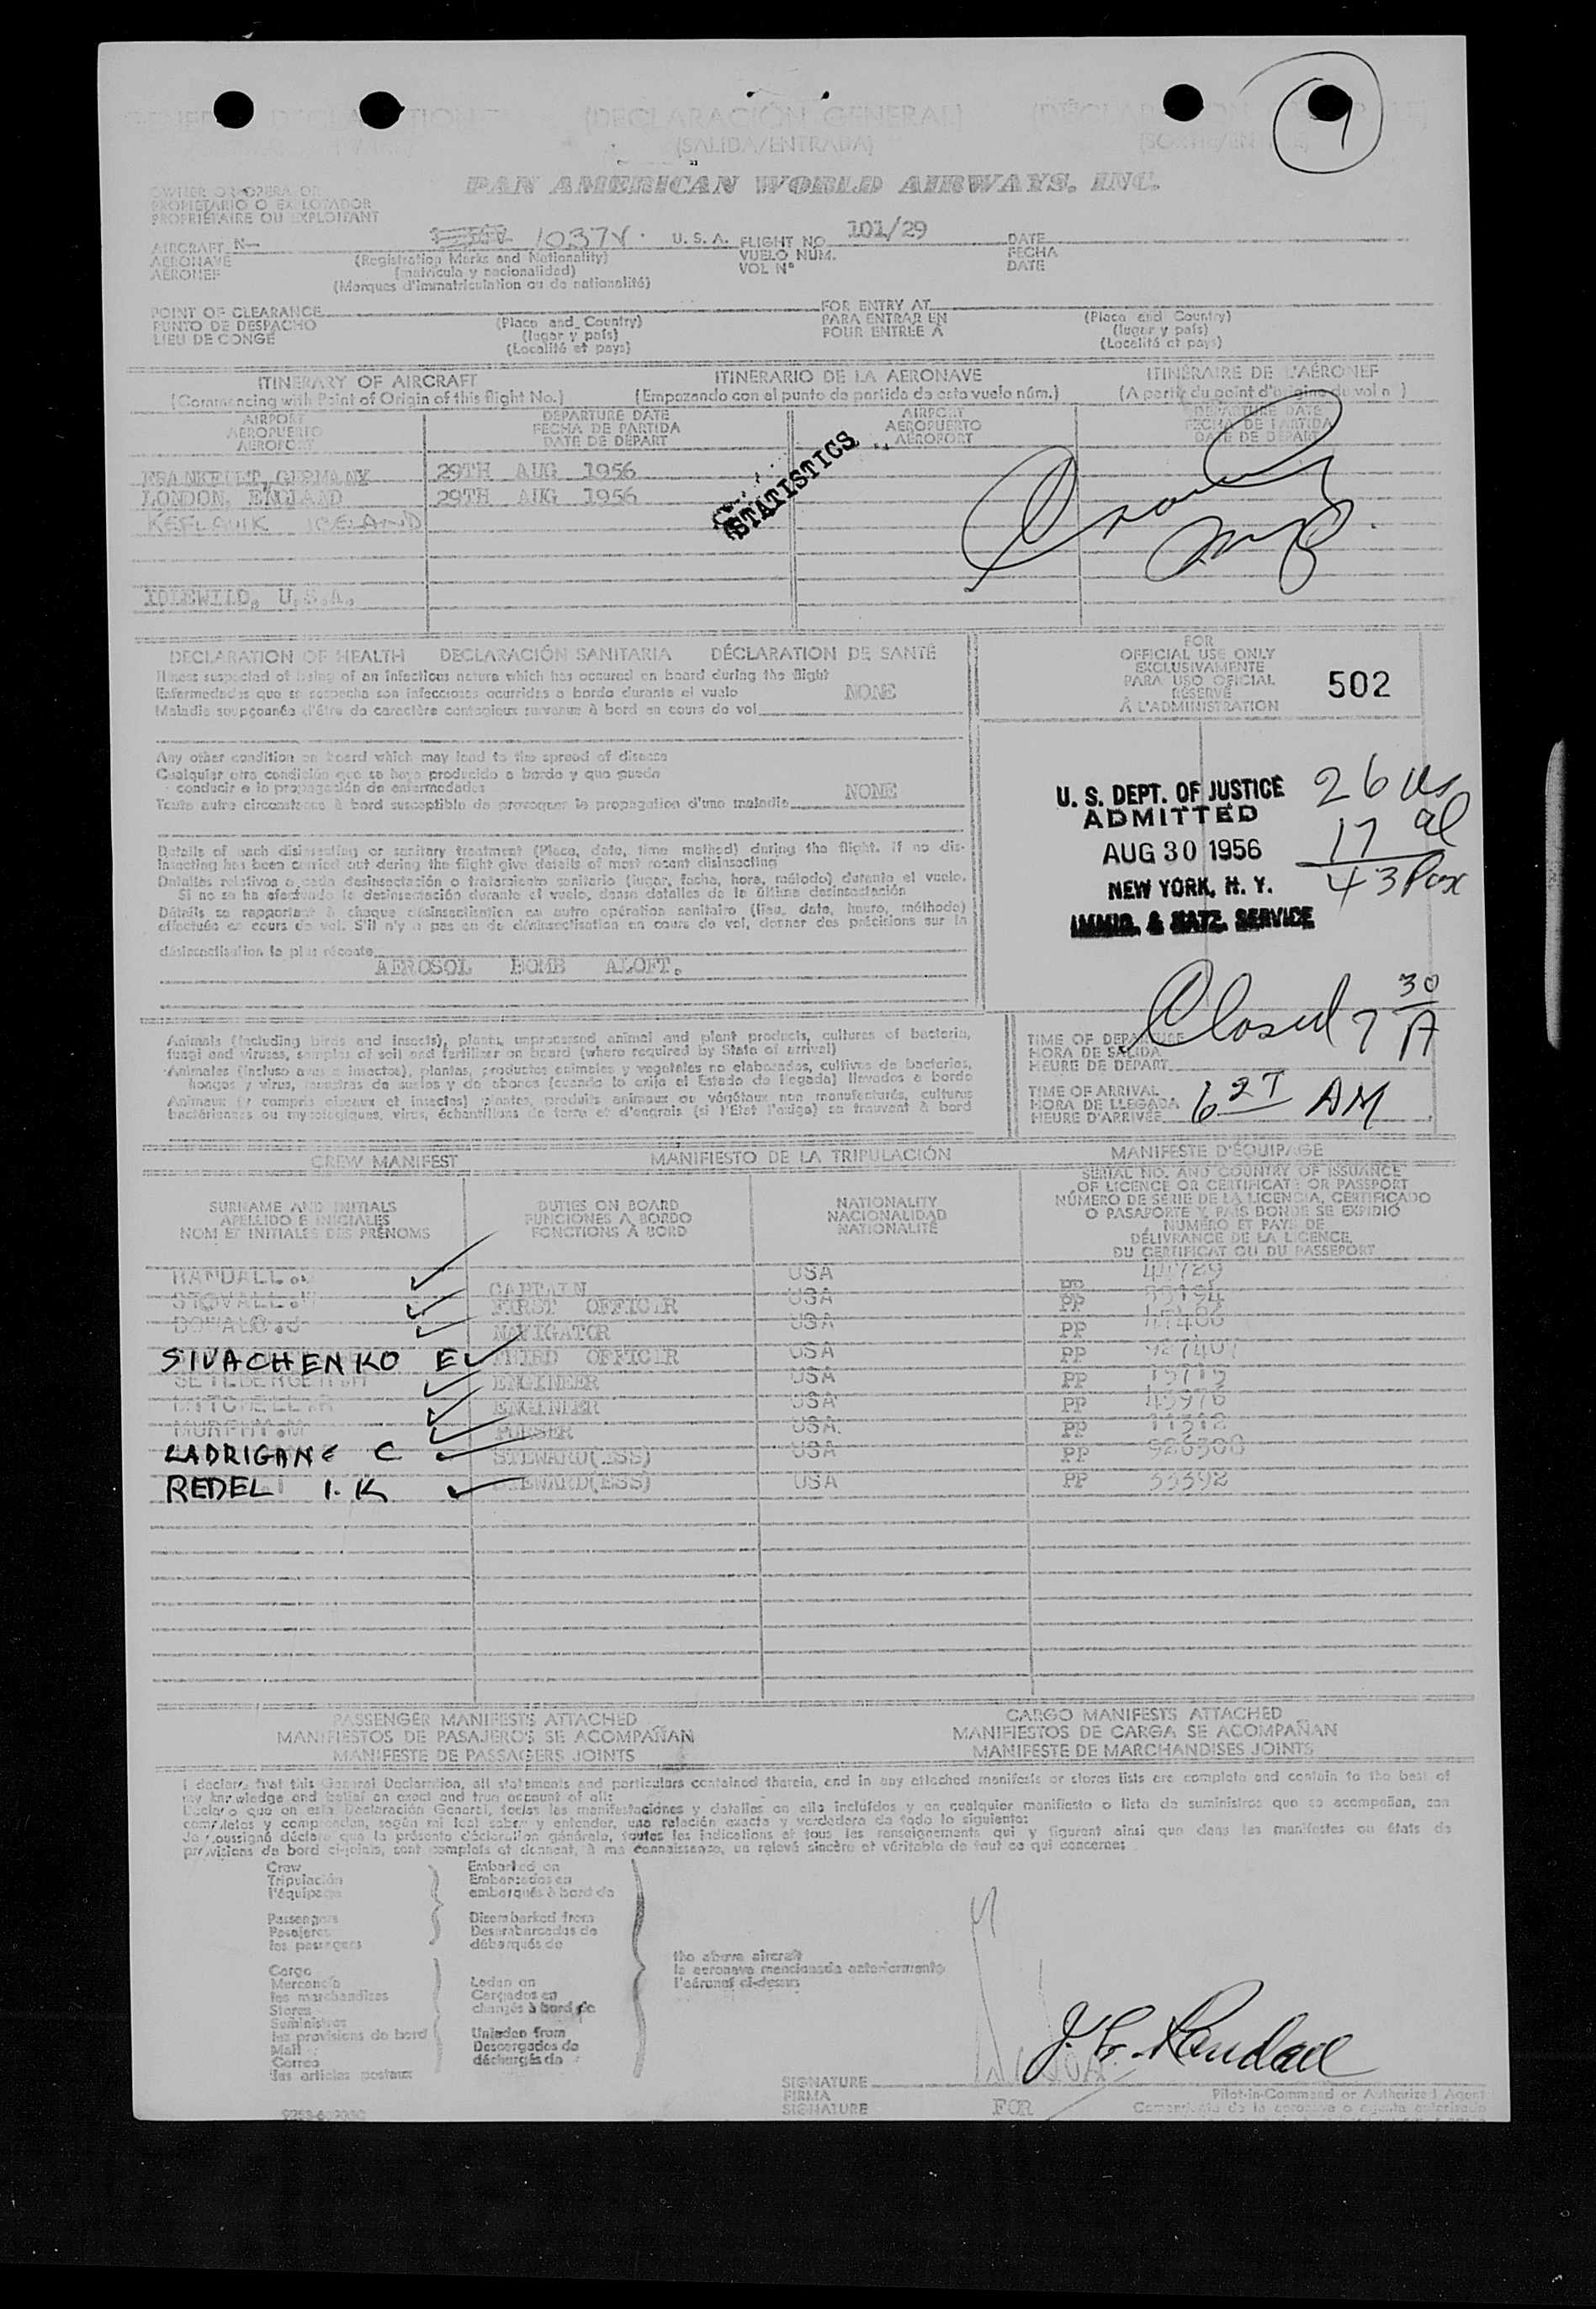 9
(DECLARACIÓN GENERAL)
(SALIDA/ENTRADA)
PAN AMERICAN WORLD AIRWAYS, INC.
OWNER OR OPERATOR
PROPIETARIO O EXPLOTADOR
PROPRIÉTAIRE OU EXPLOITANT
AIRCRAFT N— 1037V. U. S. A. FLIGHT NO. 101/29 DATE
AERONAVE (Registration Marks and Nationality) VUELO NÚM. FECHA
AÉRONEF (matrícula y nacionalidad) VOL Nº DATE
(Marques d'immatriculation ou de nationalité)
POINT OF CLEARANCE FOR ENTRY AT
PUNTO DE DESPACHO (Place and Country) PARA ENTRAR EN (Place and Country)
LIEU DE CONGÉ (lugar y país) POUR ENTRÉE À (lugar y país)
(Localité et pays) (Localité et pays)
ITINERARY OF AIRCRAFT ITINERARIO DE LA AERONAVE ITINÉRAIRE DE L'AÉRONEF
(Commencing with Point of Origin of this flight No.) (Empezando con el punto de partida de este vuelo núm.) (A partir du point d'origine du vol n )
AIRPORT DEPARTURE DATE AIRPORT DEPARTURE DATE
AEROPUERTO FECHA DE PARTIDA AEROPUERTO FECHA DE PARTIDA
AÉROPORT DATE DE DÉPART AÉROPORT DATE DE DÉPART
STATISTICS
FRANKFURT, GERMANY 29TH AUG 1956
LONDON, ENGLAND 29TH AUG 1956
KEFLAVIK ICELAND
IDLEWILD, U.S.A.
DECLARATION OF HEALTH DECLARACIÓN SANITARIA DÉCLARATION DE SANTÉ
Illness suspected of being of an infectious nature which has occured on board during the flight
Enfermedades que se sospecha son infecciosas ocurridas a bordo durante el vuelo NONE
Maladie soupçonnée d'être de caractère contagieux survenue à bord en cours de vol
FOR
OFFICIAL USE ONLY
EXCLUSIVAMENTE
PARA USO OFICIAL 502
RÉSERVÉ
À L'ADMINISTRATION
Any other condition on board which may lead to the spread of disease
Cualquier otra condición que se haya producido a bordo y que pueda
conducir a la propagación de enfermedades
Toute autre circonstance à bord susceptible de provoquer la propagation d'une maladie NONE
U. S. DEPT. OF JUSTICE
ADMITTED
AUG 30 1956
NEW YORK, N. Y.
IMMIG. & NATZ. SERVICE
26 us
17 al
43 Pax
Details of each disinsecting or sanitary treatment (Place, date, time method) during the flight. If no dis-
insecting has been carried out during the flight give details of most recent disinsecting
Detalles relativos a cada desinsectación o tratamiento sanitario (lugar, fecha, hora, método) durante el vuelo.
Si no se ha efectuado la desinsectación durante el vuelo, dense detalles de la última desinsectación
Détails se rapportant à chaque désinsectisation ou autre opération sanitaire (lieu, date, heure, méthode)
effectuée en cours de vol. S'il n'y a pas eu de désinsectisation en cours de vol, donner des précisions sur la
désinsectisation la plus récente
AEROSOL BOMB ALOFT.
Closed 7 30 A
Animals (including birds and insects), plants, unprocessed animal and plant products, cultures of bacteria,
fungi and viruses, samples of soil and fertilizer on board (where required by State of arrival)
Animales (incluso aves e insectos), plantas, productos animales y vegetales no elaborados, cultivos de bacterias,
hongos y virus, muestras de suelos y de abonos (cuando lo exija el Estado de llegada) llevados a bordo
Animaux (y compris oiseaux et insectes) plantes, produits animaux ou végétaux non manufacturés, cultures
bactériennes ou mycologiques, virus, échantillons de terre et d'engrais (si l'Etat l'exige) se trouvant à bord
TIME OF DEPARTURE
HORA DE SALIDA
HEURE DE DÉPART
TIME OF ARRIVAL
HORA DE LLEGADA 6 27 AM
HEURE D'ARRIVÉE
CREW MANIFEST MANIFIESTO DE LA TRIPULACIÓN MANIFESTE D'ÉQUIPAGE
SURNAME AND INITIALS DUTIES ON BOARD NATIONALITY
APELLIDO E INICIALES FUNCIONES A BORDO NACIONALIDAD
NOM ET INITIALES DES PRÉNOMS FONCTIONS À BORD NATIONALITÉ
SERIAL NO. AND COUNTRY OF ISSUANCE
OF LICENCE OR CERTIFICATE OR PASSPORT
NÚMERO DE SERIE DE LA LICENCIA, CERTIFICADO
O PASAPORTE Y PAÍS DONDE SE EXPIDIÓ
NUMÉRO ET PAYS DE
DÉLIVRANCE DE LA LICENCE,
DU CERTIFICAT OU DU PASSEPORT
RANDALL.J CAPTAIN USA PP
STOVALL. FIRST OFFICER USA PP
NAVIGATOR USA PP
SIVACHENKO E THIRD OFFICER USA PP
ENGINEER USA PP
ENGINEER USA PP
MURPHY.M PURSER USA PP
LADRIGANE C STEWARD(ESS) USA PP
REDEL I. K STEWARD(ESS) USA PP 33392
PASSENGER MANIFESTS ATTACHED CARGO MANIFESTS ATTACHED
MANIFIESTOS DE PASAJEROS SE ACOMPAÑAN MANIFIESTOS DE CARGA SE ACOMPAÑAN
MANIFESTE DE PASSAGERS JOINTS MANIFESTE DE MARCHANDISES JOINTS
I declare that this General Declaration, all statements and particulars contained therein, and in any attached manifests or stores lists are complete and contain to the best of
my knowledge and belief an exact and true account of all:
Declaro que en esta Declaración General, todas las manifestaciones y detalles en ella incluídos y en cualquier manifiesto o lista de suministros que se acompañan, son
completos y comprenden, según mi leal saber y entender, una relación exacta y verdadera de todo lo siguiente:
Je soussigné déclare que la présente déclaration générale, toutes les indications et tous les renseignements qui y figurent ainsi que dans les manifestes ou états de
provisions de bord ci-joints, sont complets et donnent, à ma connaissance, un relevé sincère et véritable de tout ce qui concerne:
Crew Embarked on
Tripulación Embarcados en
l'équipage embarqués à bord de
Passengers Disembarked from
Pasajeros Desembarcados de
les passagers débarqués de
the above aircraft
la aeronave mencionada anteriormente
l'aéronef ci-dessus
Cargo
Mercancía Laden on
les marchandises Cargados en
Stores chargés à bord de
Suministros
les provisions de bord Unladen from
Mail Descargados de
Correo déchargés de
les articles postaux
J. G. Randall
SIGNATURE Pilot-in-Command or Authorized Agent
FIRMA Comandante de la aeronave o agente autorizado
SIGNATURE FOR